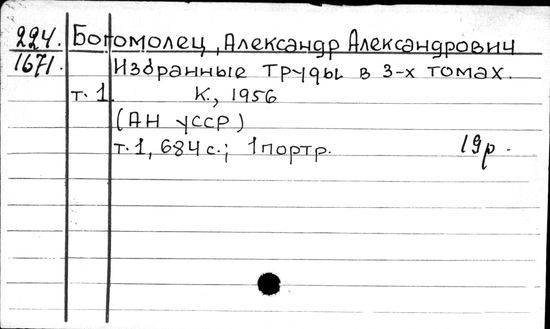 224. Богомолец, Александр Александрович
1671. Избранные труды в 3-х томах.
т. 1 К., 1956
(АН УССР)
т. 1, 684 с.; 1 портр. 19р.